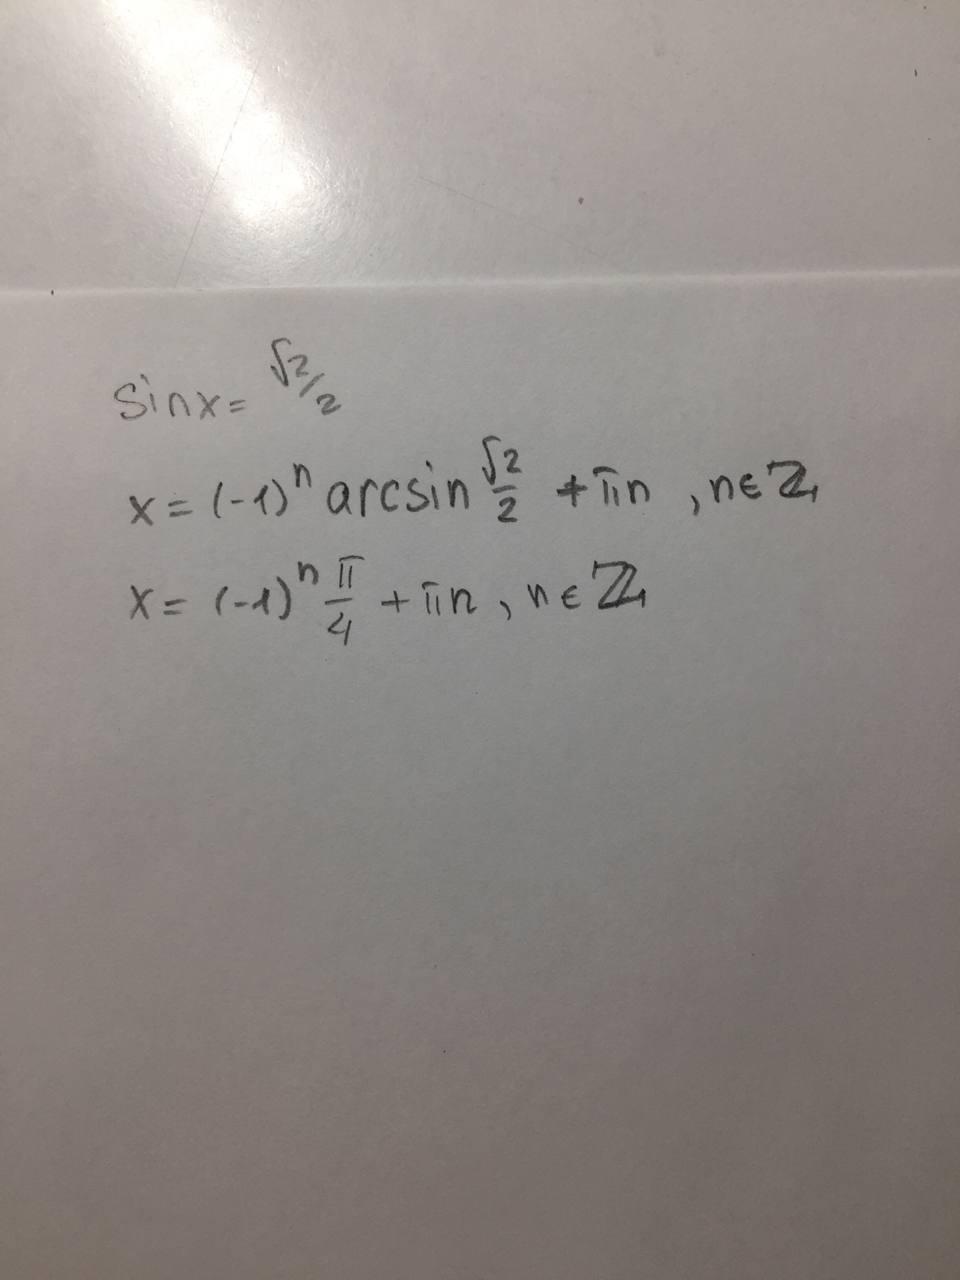 sinx = √2/2
x = (-1)ⁿ arcsin √2/2 + πn , n∈ℤ
x = (-1)ⁿ π/4 + πn, n∈ℤ